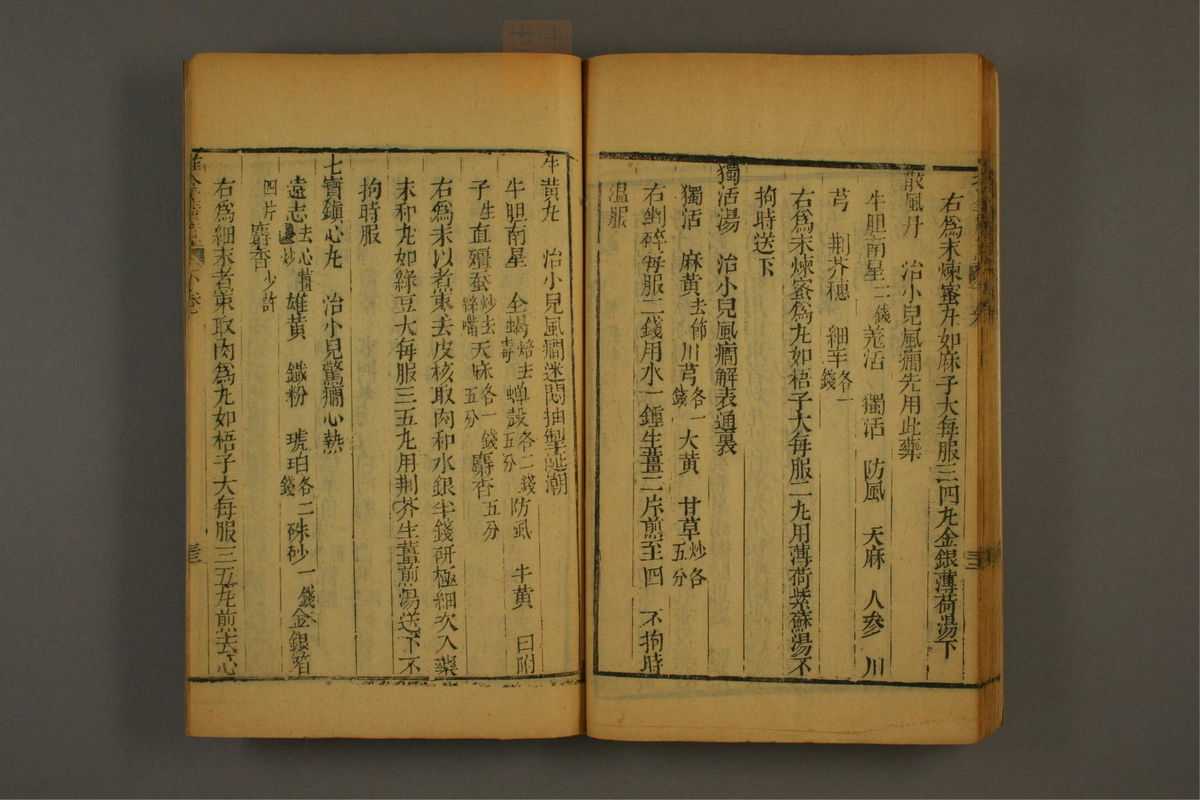 右爲末煉蜜丸如麻子大每服三四丸金銀薄荷湯下
散風丹　治小兒風癎先用此藥
牛胆南星二錢羗活　獨活　防風　天麻　人參　川
芎　荆芥穗　細辛各一錢
右爲末煉蜜爲丸如梧子大每服二丸用薄荷紫蘇湯不
拘時送下
獨活湯　治小兒風癎解表通裏
獨活　麻黄去節川芎各一錢大黄　甘草炒各五分
右剉碎每服二錢用水一鍾生薑二片煎至四　不拘時
温服
牛黄丸　治小兒風癎迷悶抽掣涎潮
牛胆南星　全蝎焙去毒蟬殻各二錢五分防風　牛黄　白附
子生直殭蚕炒去絲嘴天麻各一錢五分麝香五分
右爲末以煮棗去皮核取肉和水銀半錢研極細次入藥
末和丸如綠豆大每服三五丸用荆芥生薑煎湯送下不
拘時服
七寶鎮心丸　治小兒驚癎心熱
遠志去心薑炒雄黄　鐵粉　琥珀各二錢硃砂一錢金銀箔
四片麝香少許
右爲細末煮棗取肉爲丸如梧子大每服三五丸煎去心